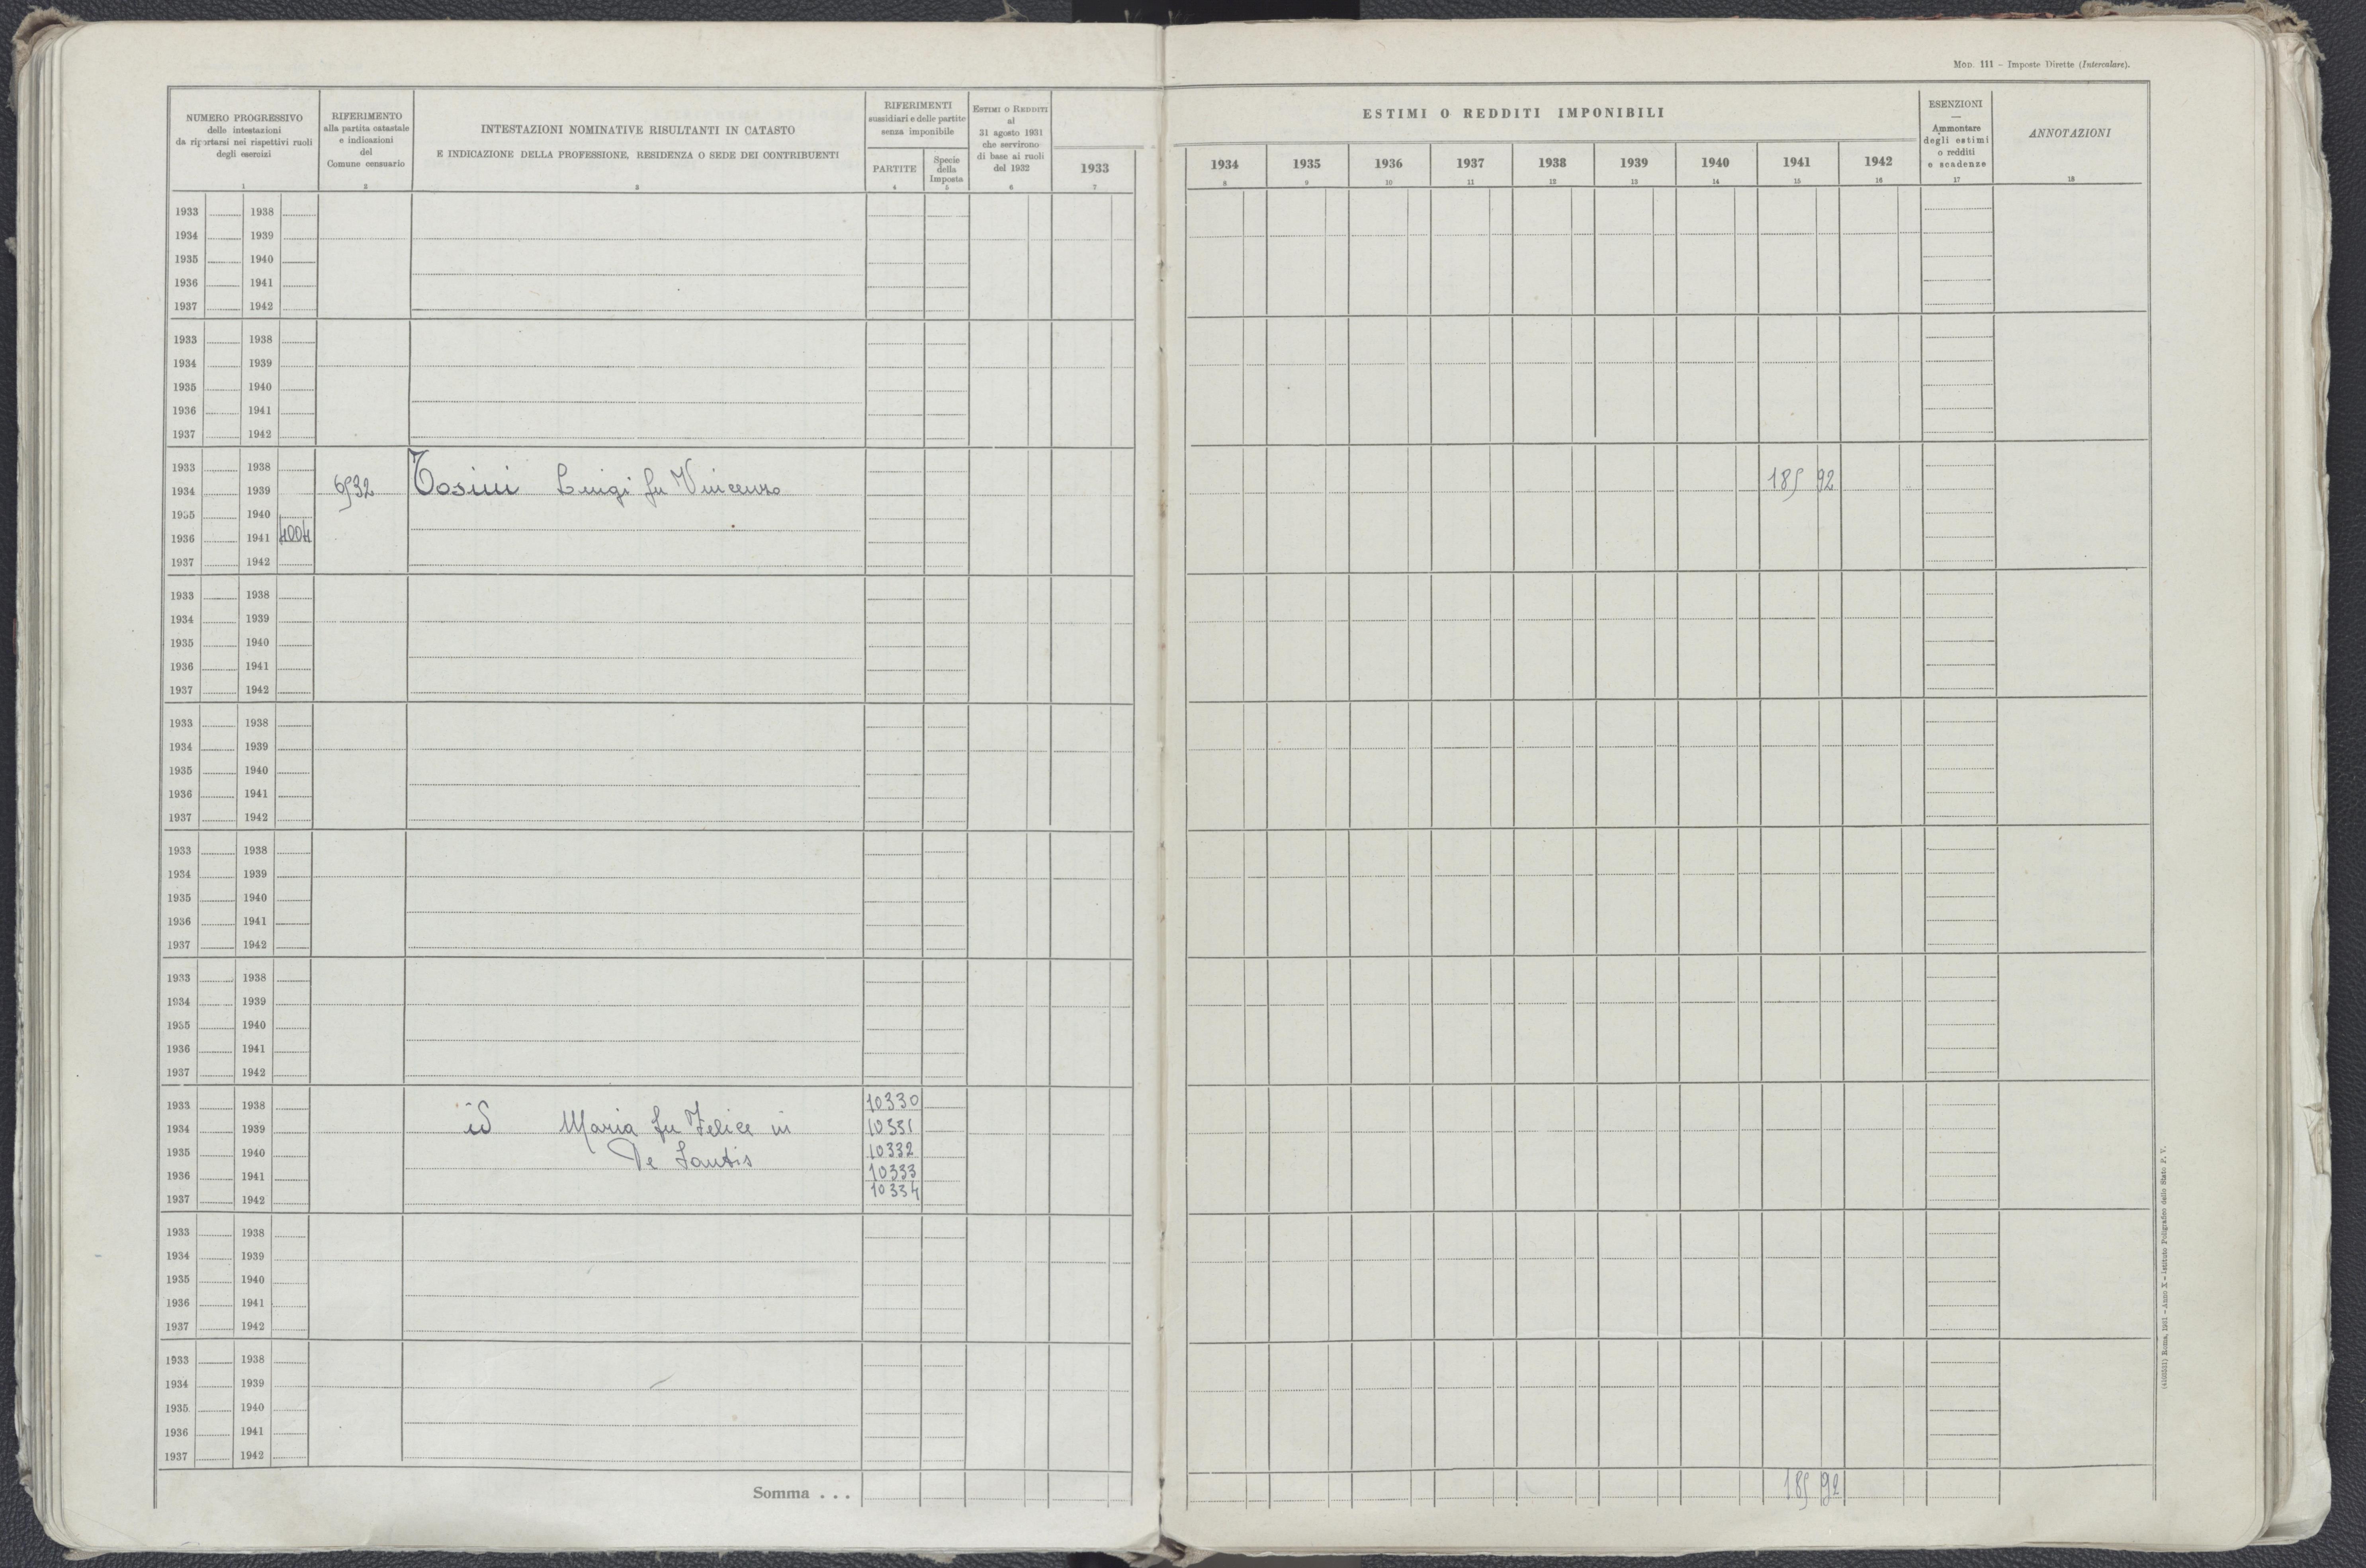 Mod. 111 – Imposte Dirette (Intercalare).
NUMERO PROGRESSIVO
delle intestazioni
da riportarsi nei rispettivi ruoli
degli esercizi
1
RIFERIMENTO
alla partita catastale
e indicazioni
del
Comune censuario
2
INTESTAZIONI NOMINATIVE RISULTANTI IN CATASTO
E INDICAZIONE DELLA PROFESSIONE, RESIDENZA O SEDE DEI CONTRIBUENTI
3
RIFERIMENTI
sussidiari e delle partite
senza imponibile
PARTITE
4
Specie
della
Imposta
5
Estimi o Redditi
al
31 agosto 1931
che servirono
di base ai ruoli
del 1932
6
1933
7
ESTIMI O REDDITI IMPONIBILI
1934 1935 1936 1937 1938 1939 1940 1941 1942
8 9 10 11 12 13 14 15 16
ESENZIONI
—
Ammontare
degli estimi
o redditi
e scadenze
17
ANNOTAZIONI
18
1933 1938
1934 1939
1935 1940
1936 1941
1937 1942
1933 1938
1934 1939
1935 1940
1936 1941
1937 1942
1933 1938
1934 1939 6532 Tosini Luigi fu Vincenzo 185 92
1935 1940
1936 1941 4004
1937 1942
1933 1938
1934 1939
1935 1940
1936 1941
1937 1942
1933 1938
1934 1939
1935 1940
1936 1941
1937 1942
1933 1938
1934 1939
1935 1940
1936 1941
1937 1942
1933 1938
1934 1939
1935 1940
1936 1941
1937 1942
1933 1938 10330
1934 1939 id Maria fu Felice in 10331
1935 1940 De Santis 10332
1936 1941 10333
1937 1942 10334
1933 1938
1934 1939
1935 1940
1936 1941
1937 1942
1933 1938
1934 1939
1935 1940
1936 1941
1937 1942
Somma . . . 185 92
Roma, 1931 – Anno X – Istituto Poligrafico dello Stato P. V.